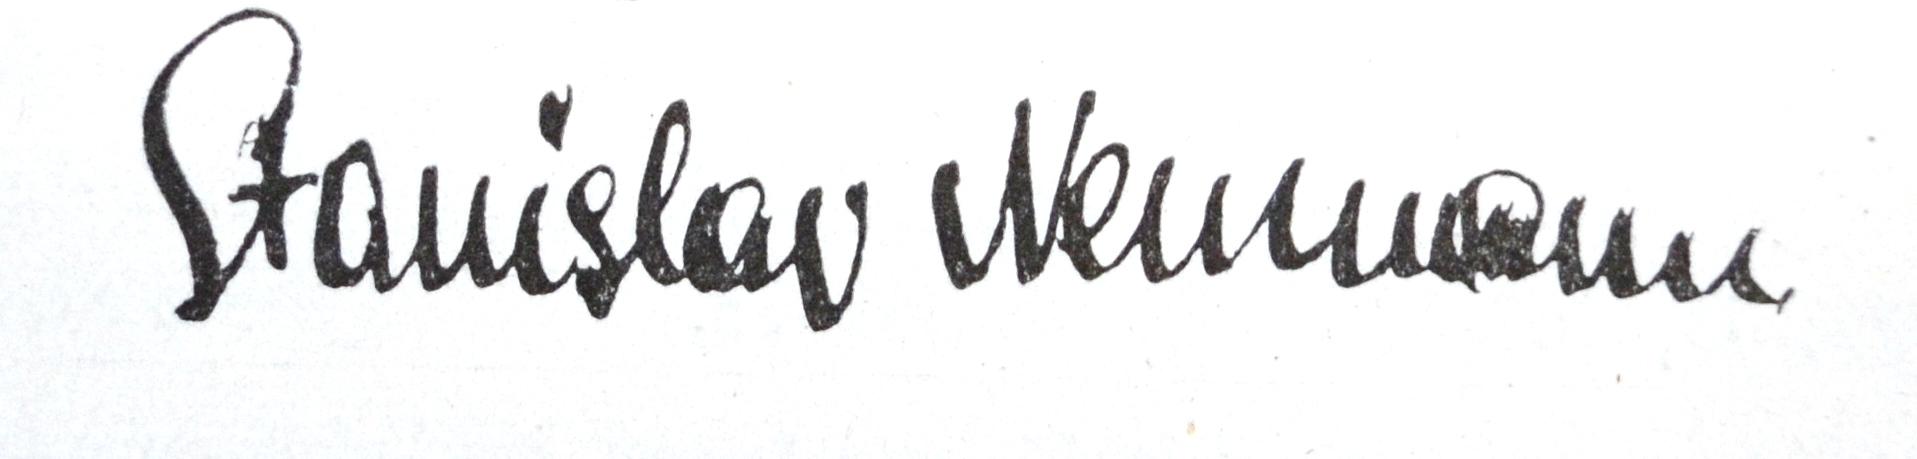 Stanislav Neumann